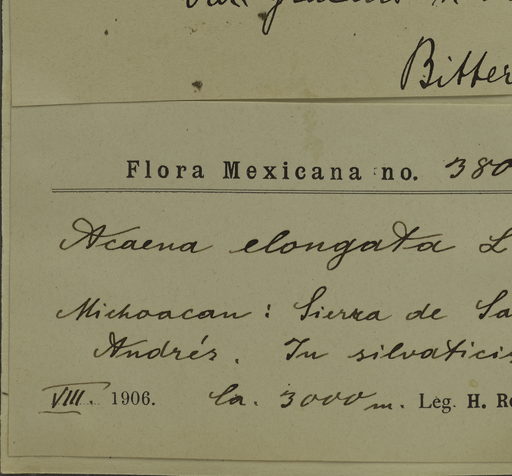 var. gracilis
Bitter
Flora Mexicana no. 380
Acaena elongata L
Michoacan : Sierra de Sa
Andrés. In silvaticis
VIII. 1906. Ca. 3000 m. Leg. H. Ro